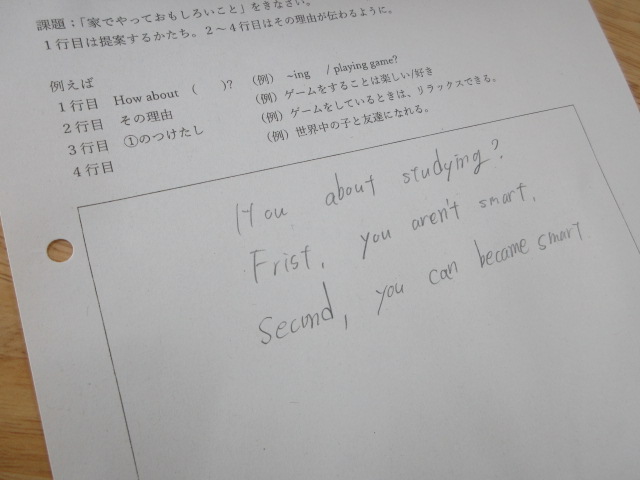 課題；「家でやっておもしろいこと」をきなさい。
１行目は提案するかたち。２～４行目はその理由が伝わるように。
例えば
１行目 How about （ ）? （例） ~ing / playing game?
２行目 その理由 （例）ゲームをすることは楽しい/好き
３行目 ①のつけたし （例）ゲームをしているときは、リラックスできる。
４行目 （例）世界中の子と友達になれる。
Hou about studying?
Frist, you aren't smart.
Second, you can became smart